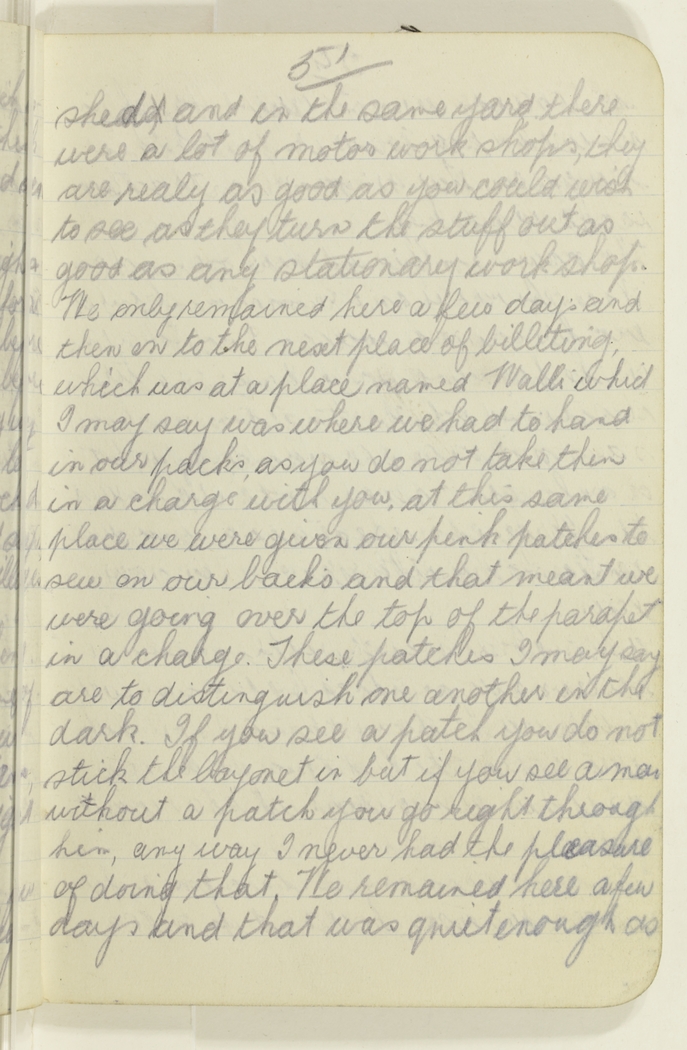 51
sheds and in the same yard there
were a lot of motor work shops, they
are realy as good as you could wish
to see as they turn the stuff out as
good as any stationary work shop.
We only remained here a few days and
then on to the next place of billeting,
which was at a place named Walli which
I may say was where we had to hand
in our packs, as you do not take them
in a charge with you, at this same
place we were given our pink patches to
sew on our backs and that meant we
were going over the top of the parapet
in a charge. These patches I may say
are to distinguish one another in the
dark. If you see a patch you do not
stick the bayonet in but if you see a man
without a patch you go right through
him, any way I never had the pleasure
of doing that. We remained here a few
days and that was quiet enough as